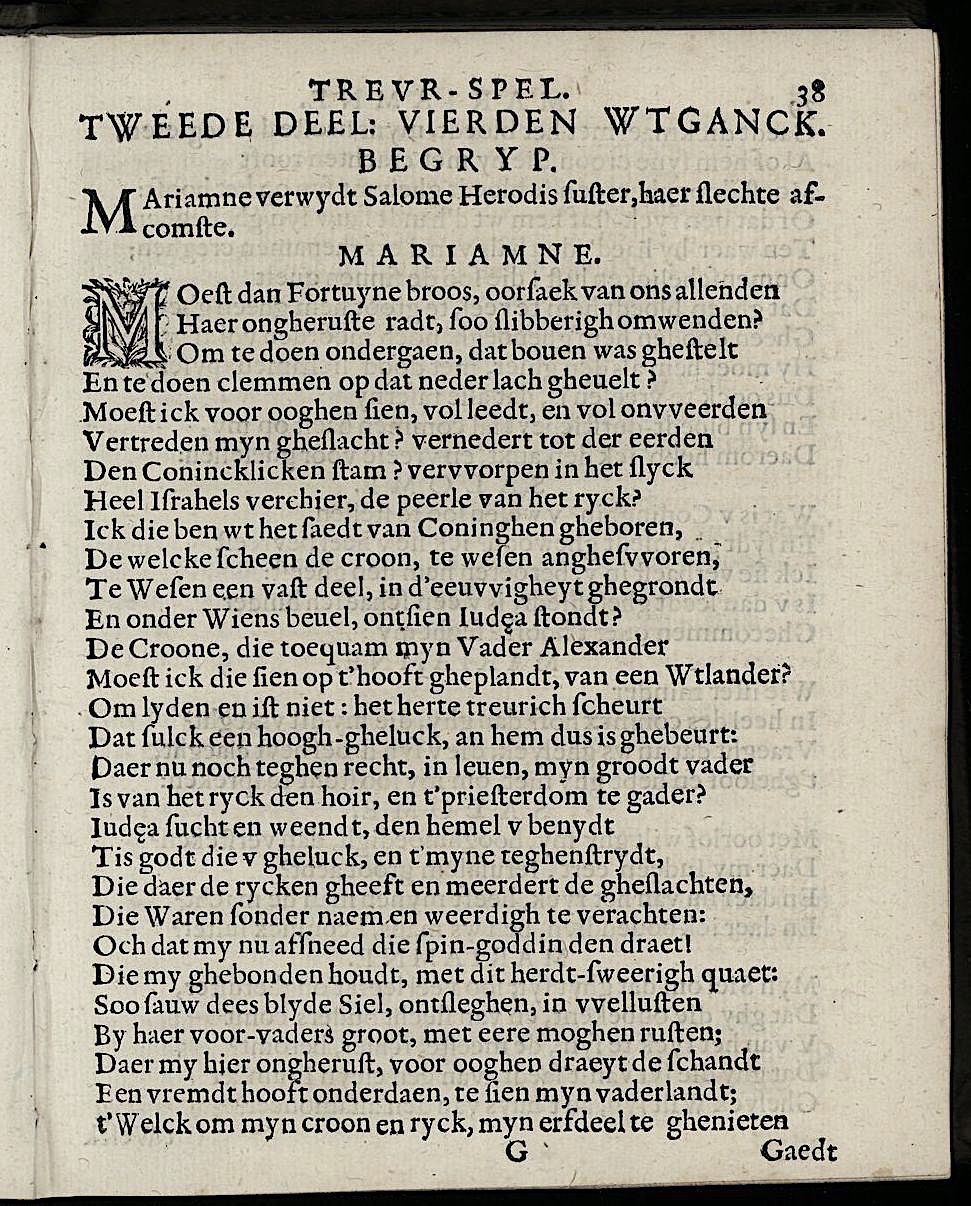 TREVR-SPEL. 38
TWEEDE DEEL: VIERDEN WTGANCK.
BEGRYP.
MAriamne verwydt Salome Herodis ſuſter, haer ſlechte af-
comſte.
MARIAMNE.
MOeſt dan Fortuyne broos, oorſaek van ons allenden
Haer ongheruſte radt, ſoo ſlibberigh omwenden?
Om te doen ondergaen, dat bouen was gheſtelt
En te doen clemmen op dat neder lach gheuelt?
Moeſt ick voor ooghen ſien, vol leedt, en vol onvveerden
Vertreden myn gheſlacht? vernedert tot der eerden
Den Conincklicken ſtam? vervvorpen in het ſlyck
Heel Iſrahels verchier, de peerle van het ryck?
Ick die ben wt het ſaedt van Coninghen gheboren,
De welcke ſcheen de croon, te weſen angheſvvoren,
Te Weſen een vaſt deel, in d'eeuvvigheyt ghegrondt
En onder Wiens beuel, ontſien Iudęa ſtondt?
De Croone, die toequam myn Vader Alexander
Moeſt ick die ſien op t'hooft gheplandt, van een Wtlander?
Om lyden en iſt niet: het herte treurich ſcheurt
Dat ſulck een hoogh-gheluck, an hem dus is ghebeurt:
Daer nu noch teghen recht, in leuen, myn groodt vader
Is van het ryck den hoir, en t'prieſterdom te gader?
Iudęa ſucht en weendt, den hemel v benydt
Tis godt die v gheluck, en t'myne teghenſtrydt,
Die daer de rycken gheeft en meerdert de gheſlachten,
Die Waren ſonder naem en weerdigh te verachten:
Och dat my nu afſneed die ſpin-goddin den draet!
Die my ghebonden houdt, met dit herdt-ſweerigh quaet:
Soo ſauw dees blyde Siel, ontſleghen, in vvelluſten
By haer voor-vaders groot, met eere moghen ruſten;
Daer my hier ongheruſt, voor ooghen draeyt de ſchandt
Een vremdt hooft onderdaen, te ſien myn vaderlandt;
t'Welck om myn croon en ryck, myn erfdeel te ghenieten
G Gaedt